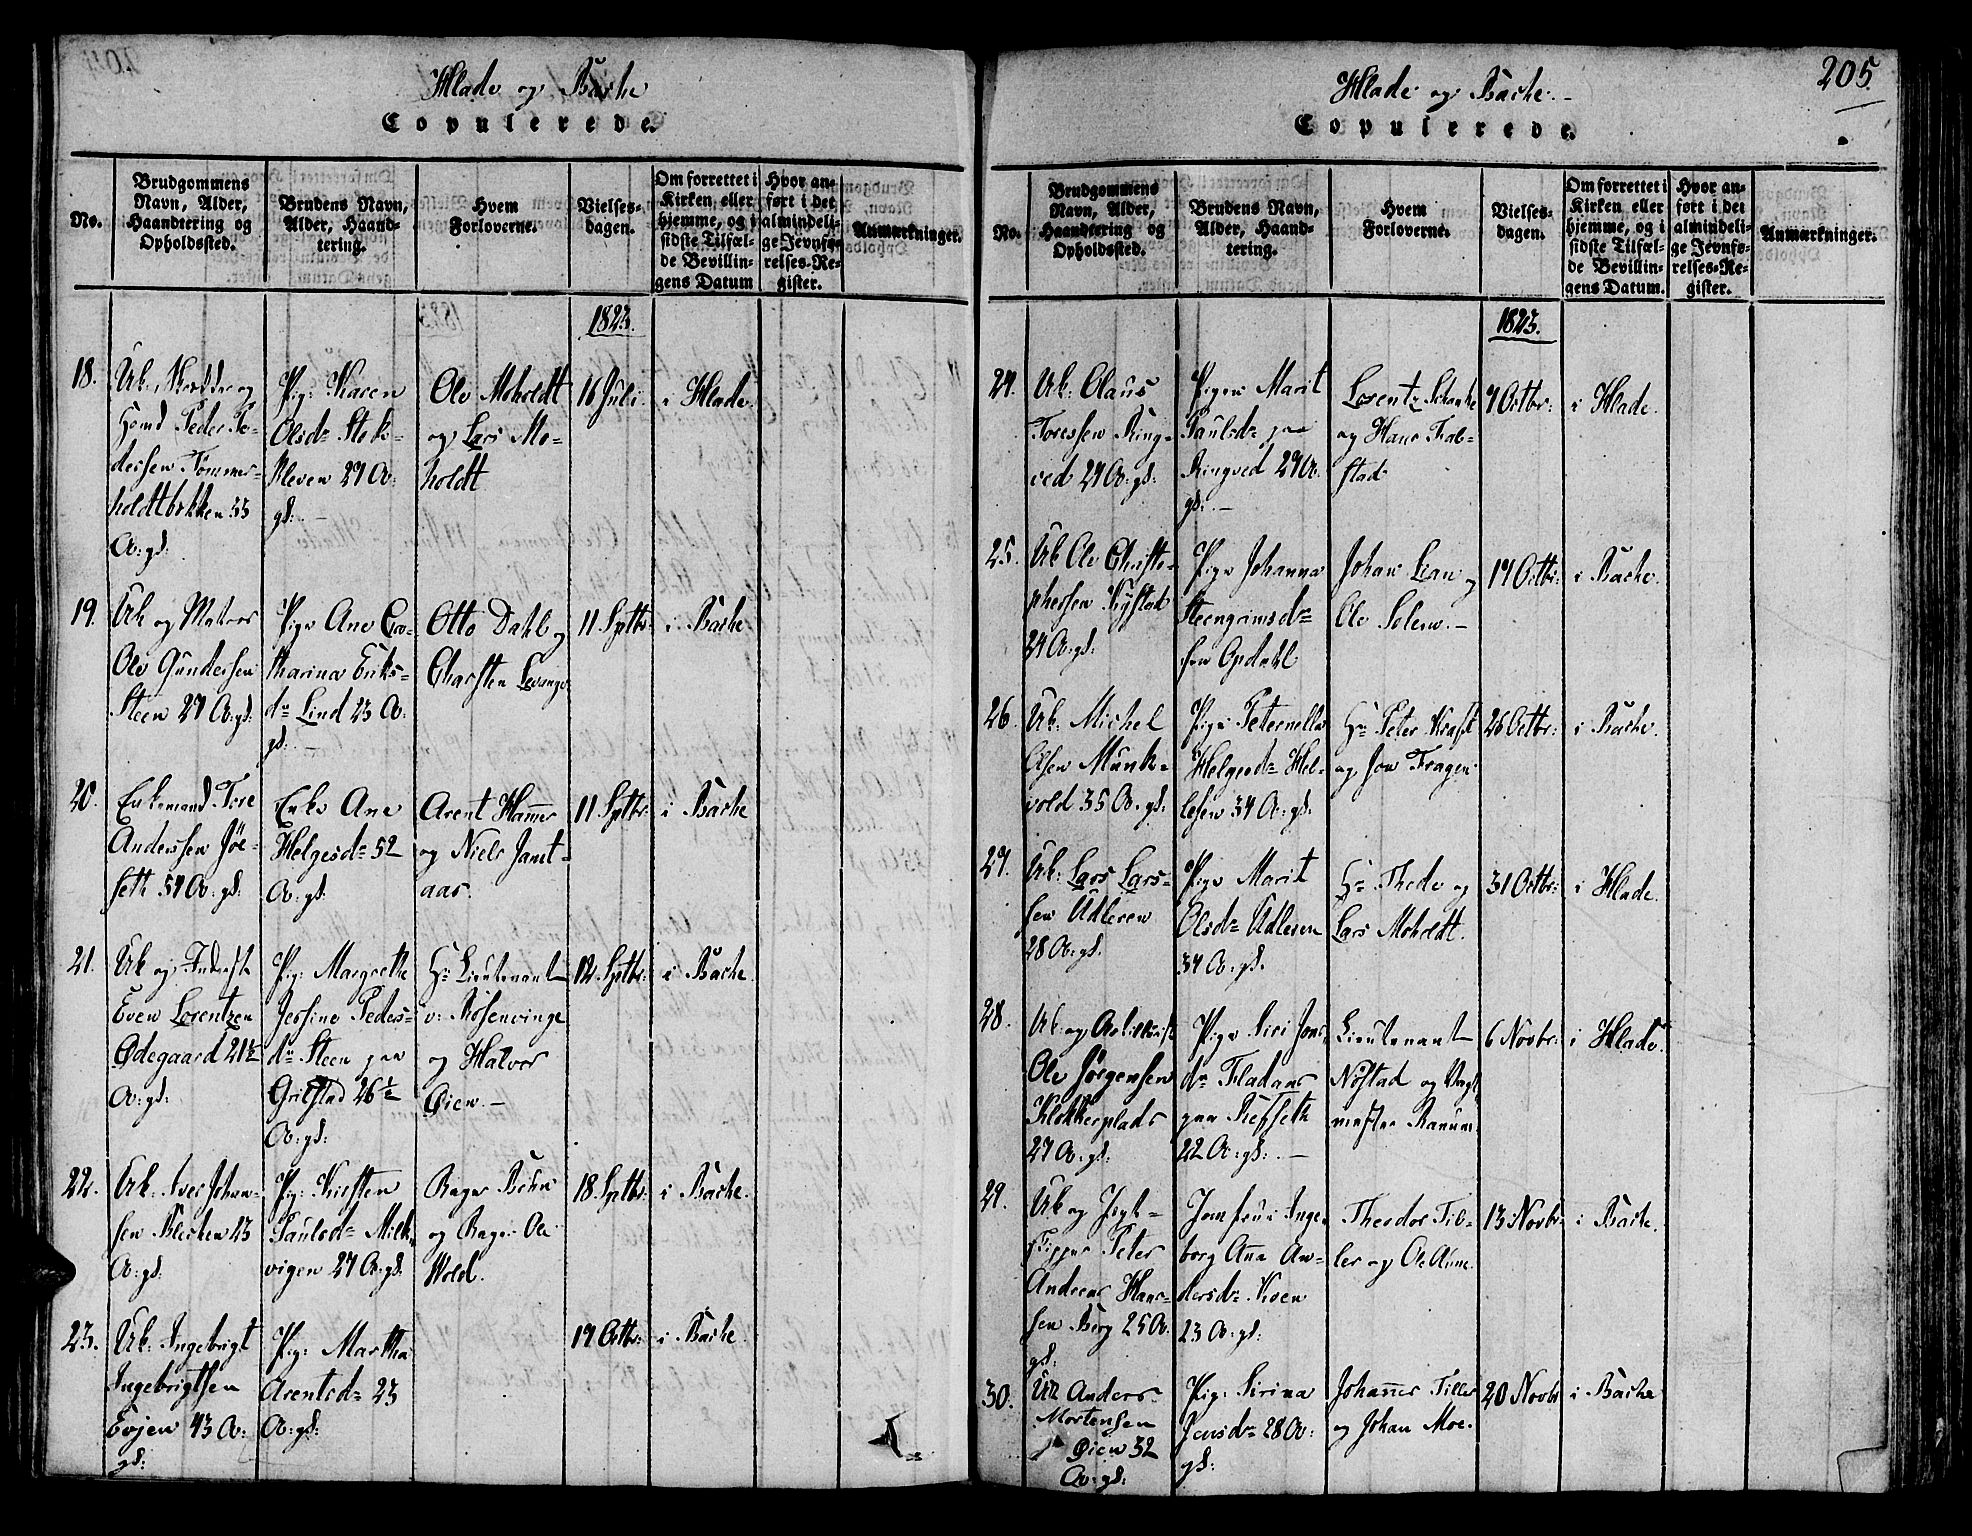 Hlade og Bache
Copulerede.
No.
Brudgommens
Navn, Alder,
Haandtering og
Opholdssted.
Brudens Navn,
Alder, Haand-
tering.
Hvem
Forloverne.
Vielses-
dagen.
Om forrettet i
Kirken eller
hjemme, og i
sidste Tilfæl-
de Bevillin-
gens Datum
Hvor an-
ført i det
almindeli-
ge Jevnfø-
relses-Re-
gister.
Anmærkninger.
1823.
18.
Uk:
Peder Pe-
dersen Tømmer-
holdtbakken 33
A: gl:
Pig: Karen
Olsd:
Kleven 27 A:
gl:
Ole Moholdt
og Lars Mo-
holdt
16 Juli
i Hlade.
19.
Uk og Matros
Ole Gundersen
Steen 27 A: gl:
Pige Ane Ca-
tharina Eriks-
d: Lind 23 A:
gl:
Otto Dahl og
Charsten
11 Sptbr:
i Bache.
20.
Enkemand Tore
Andersen
seth A: gl:
Enke Ane
Helgesd: 52
A: gl:
Arent Hammer
og Niels Jamt-
aas.
11 Sptbr:
i Bache
21.
Uk og
Even Lorentzen
Ødegaard 21½
A: gl:
Pig: Margrethe
Jersine Peders-
d: Steen paa
Grilstad 26½
A: gl:
Hr Lieutenant
v: Rosenvinge
og Halvor
Øien.
12 Sptbr:
i Bache.
22.
Uk: Iver Johan-
sen 23
A: gl:
Pig: Kirsten
Paulsd:
vigen 27 A: gl:
og Ole
Wold.
18 Sptbr:
i Bache.
23.
Uk: Ingebrigt
Ingebrigtsen
Evjen 43 A:
gl:
Pig: Martha
Arentsd: 23
A: gl:
17 Octbr:
i Bache
Hlade og Bache.
205.
Copulerede.
No.
Brudgommens
Navn, Alder,
Haandtering og
Opholdssted.
Brudens Navn,
Alder, Haand-
tering.
Hvem
Forloverne.
Vielses-
dagen.
Om forrettet i
Kirken eller
hjemme, og i
sidste Tilfæl-
de Bevillin-
gens Datum.
Hvor an-
ført i det
almindeli-
ge Jevnfø-
relses-Re-
gister.
Anmærkninger.
1823.
24.
Uk: Claus
Toressen Ring-
ved A: gl:
Pigen Marit
Paulsd: paa
Ringved A:
gl:
Lorentz Schanke
og Hans Fal-
stad
Octbr:
i Hlade.
25.
Uk Ole Christo-
phersen Kystad
A: gl:
Pige Johanna
Steengrimsd:
Opdahl
Johan Lian og
Ole Solem.
17 Octbr:
i Bache.
26.
Uk: Michel
Olsen Munk-
vold 35 A: gl:
Pige Peternella
Helgesd: Hel-
lesen 34 A: gl:
Hr Peter Kraft
og
Octbr:
i Bache.
27.
Uk: Lars Lars-
sen Udleren
28 A: gl:
Pige Marit
Olsd: Udleren
34 A: gl.
Hr Thede og
Lars Moholdt.
31 Octbr:
i Hlade.
28.
Uk og
Ole Jørgensen
Klokkerplads
27 A: gl:
Pige Siri Jons
d:
paa
22 A: gl:
Lieutenant
Nøstad og Vagt-
mester Ranum.
6 Novbr:
i Hlade.
29.
Uk og
skipper Peter
Andreas Hans-
sen Berg 25 A:
gl:
Jomfrue Inge-
borg Ana An-
dersd: Koen
23 A: gl:
Theodor Til-
ler og Ole Aune.
13 Novbr:
i Bache.
30.
Uk Anders
Mortensen
Øien 32
A: gl:
Pig: Sirina
Jensd: 28 A:
gl:
Johannes Tiller
og Johan Moe.
20 Novbr
i Bache